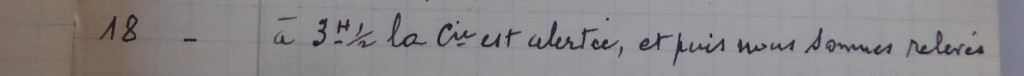 18 - à 3H½ la Cie est alertée, et puis nous sommes relevés